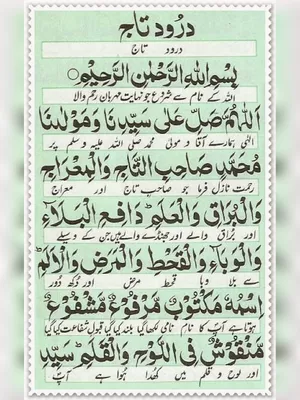 درود تاج
درود تاج
بِسْمِ اللهِ الرَّحْمٰنِ الرَّحِيْمِ
اللہ کے نام سے شروع جو نہایت مہربان رحم والا
اَللّٰهُمَّ صَلِّ عَلٰى سَيِّدِنَا وَمَوْلٰنَا
الٰہی ہمارے آقا و مولیٰ محمد صلی اللہ علیہ وسلم پر
مُحَمَّدٍ صَاحِبِ التَّاجِ وَالْمِعْرَاجِ
رحمت نازل فرما جو صاحب تاج اور معراج
وَالْبُرَاقِ وَالْعَلَمِ دَافِعِ الْبَلَاءِ
اور براق والے اور جھنڈے والے ہیں جن کے وسیلے
وَالْوَبَاءِ وَالْقَحْطِ وَالْمَرَضِ وَالْاَلَمِ
سے بلا وبا قحط مرض اور دکھ دور
اِسْمُهٗ مَكْتُوْبٌ مَّرْفُوْعٌ مَّشْفُوْعٌ
ہوتا ہے آپ کا نام نامی لکھا گیا بلند کیا گیا قبول شفاعت کیا گیا
مَّنْقُوْشٌ فِى اللَّوْحِ وَالْقَلَمِ سَيِّدِ
اور لوح و قلم میں کھدا ہوا ہے آپ